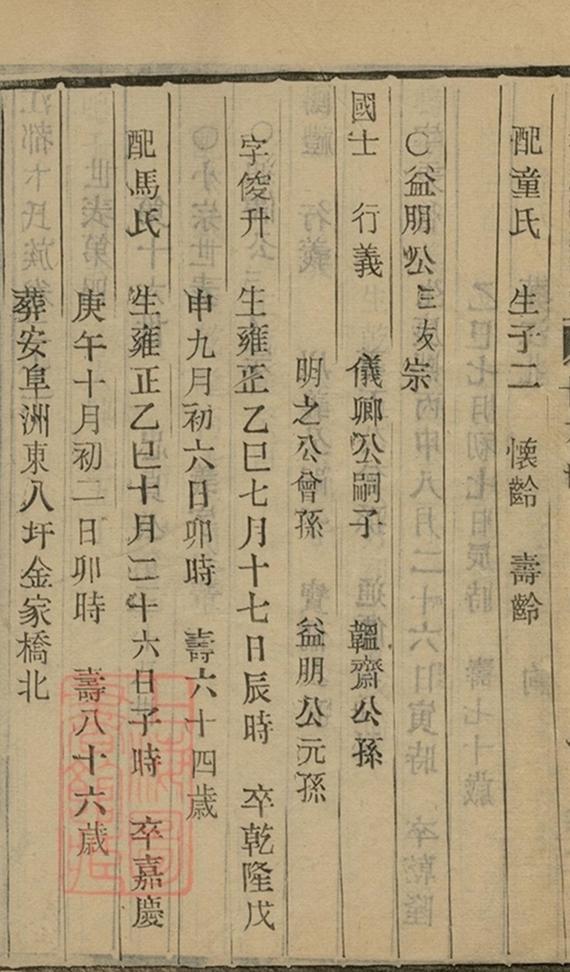 配童氏 生子二 懷齡 壽齡
○益朋公三次宗
國士 行義 儀卿公嗣子 韞齋公孫
明之公曾孫 益朋公元孫
字俊升 生雍正乙巳七月十七日辰時 卒乾隆戊
申九月初六日卯時 壽六十四歲
配馬氏 生雍正乙巳十月二十六日子時 卒嘉慶
庚午十月初二日卯時 壽八十六歲
葬安阜洲東八圩金家橋北